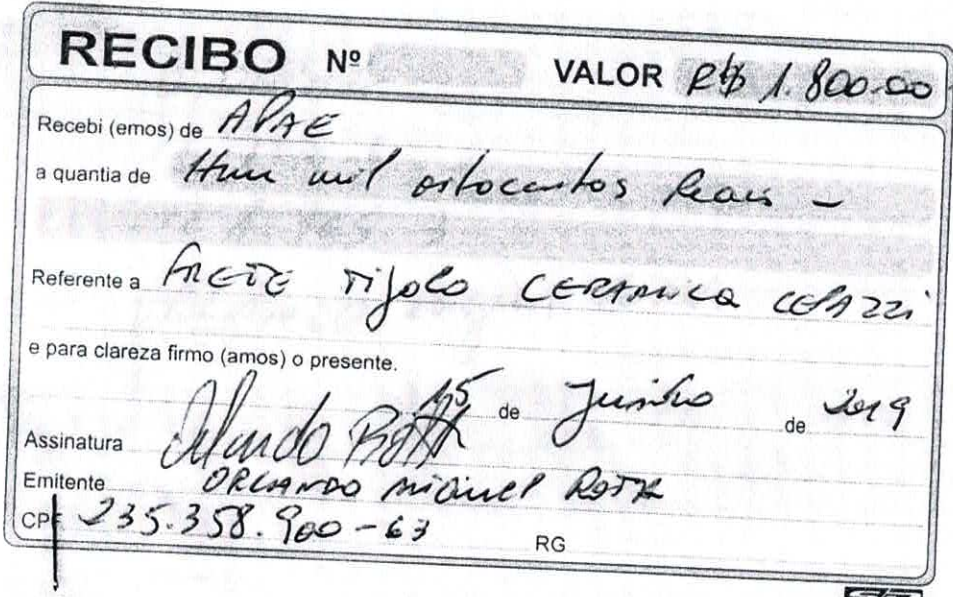 RECIBO Nº VALOR R$ 1.800.00
Recebi (emos) de APAE
a quantia de Hum mil oitocentos Reais —
Referente a FRETE Tijolo CERAMICA
e para clareza firmo (amos) o presente.
15 de Junho de 2019
Assinatura Orlando Roth
Emitente ORLANDO MIGUEL ROTH
CPF 235.358.900-63 RG